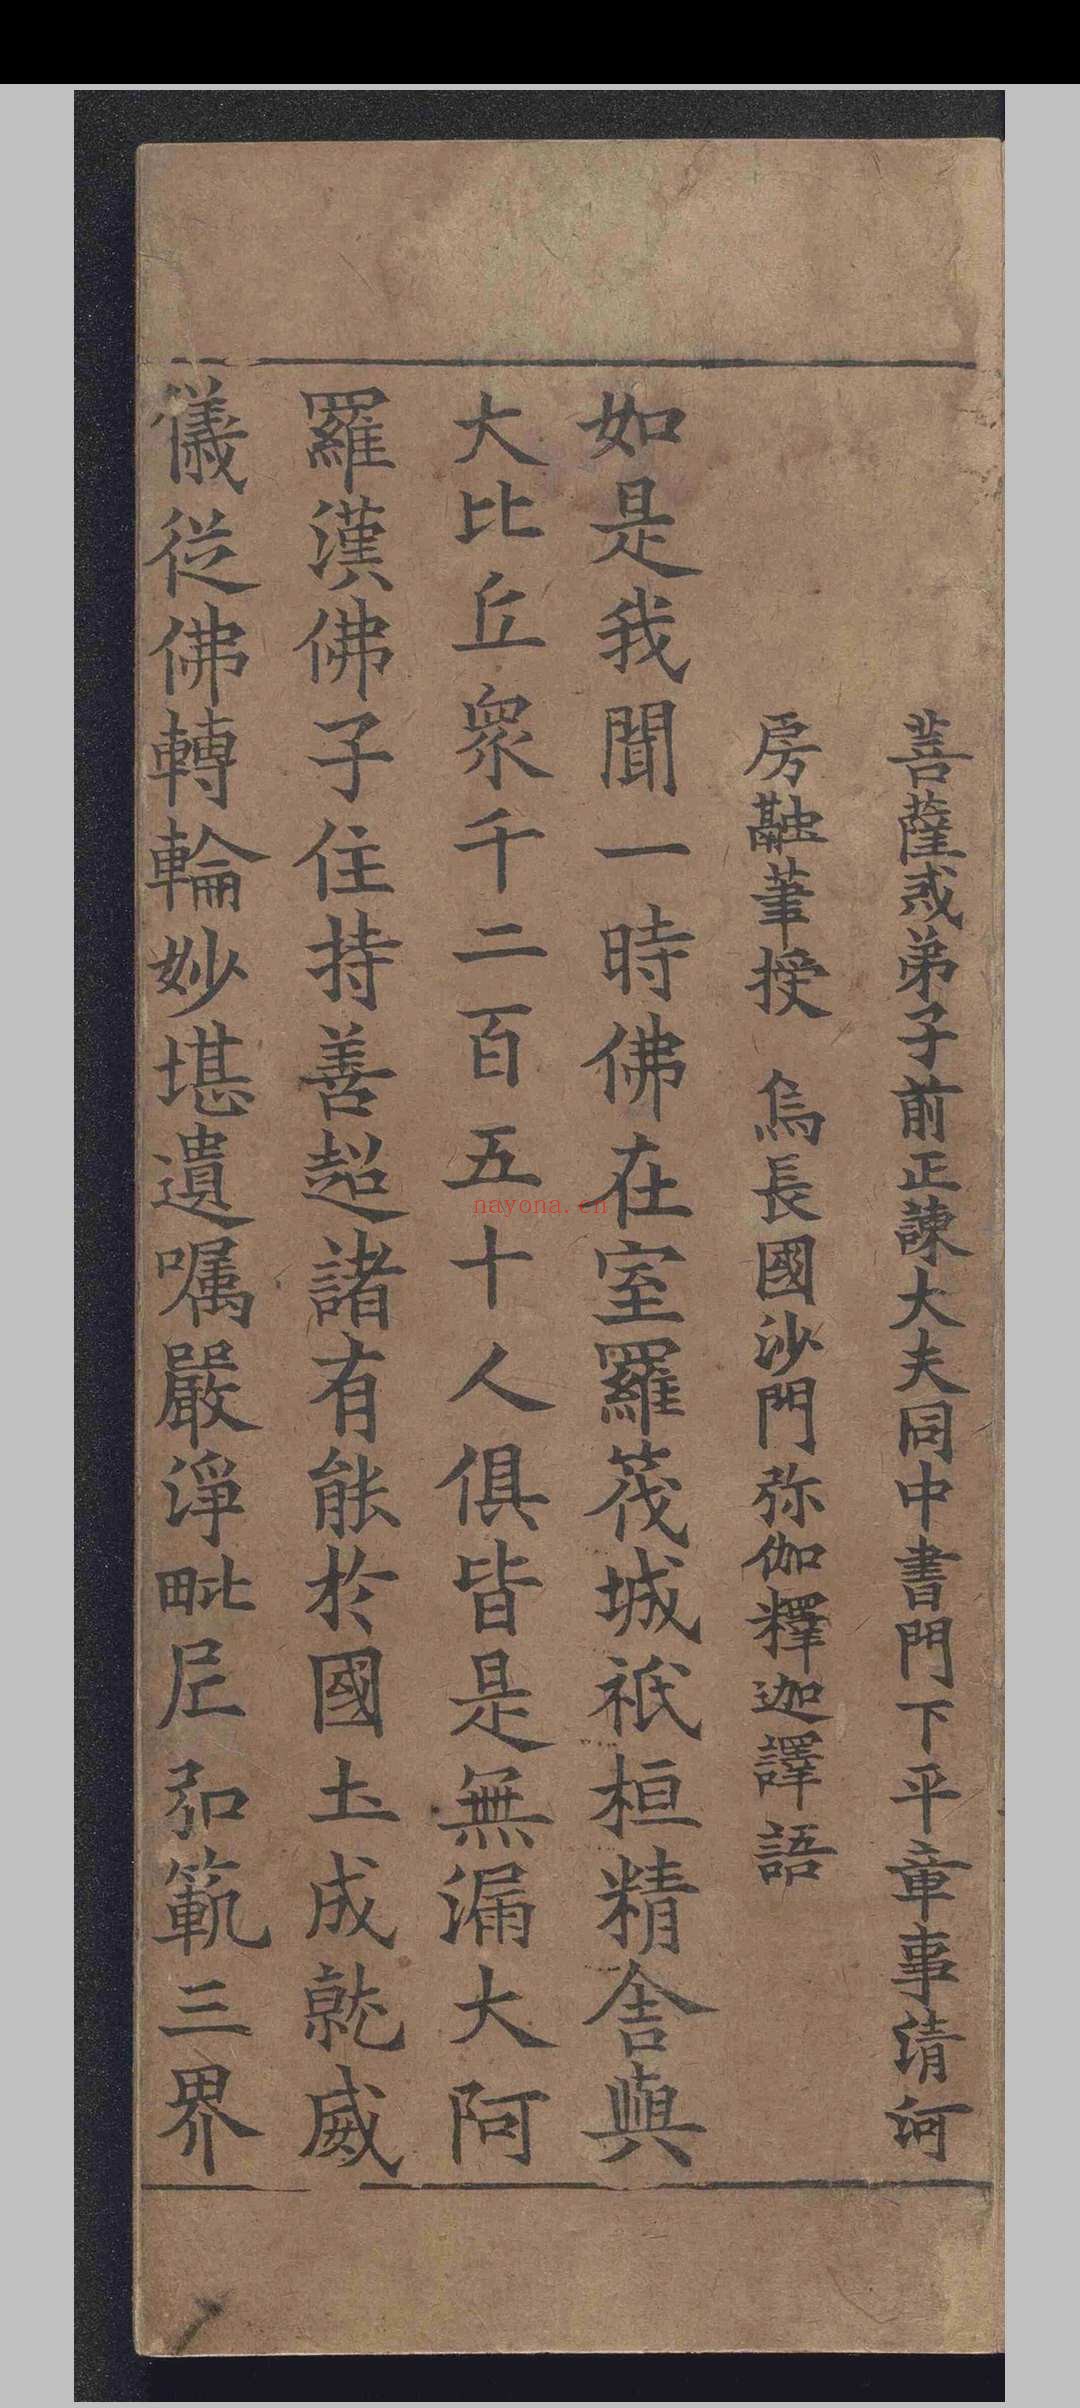 菩薩戒弟子前正諫大夫同中書門下平章事清河
房融筆授 烏長國沙門弥伽釋迦譯語
如是我聞一時佛在室羅筏城祇桓精舍與
大比丘衆千二百五十人俱皆是無漏大阿
羅漢佛子住持善超諸有能於國土成就威
儀從佛轉輪妙堪遺嘱嚴淨毗尼弘範三界
nayona.cn